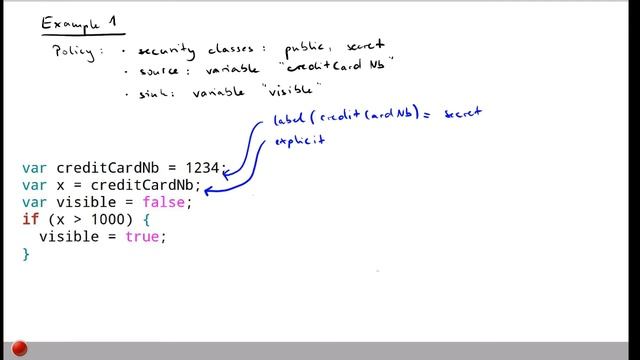 Example 1
Policy: · security classes: public, secret
· source: variable "creditCardNb"
· sink: variable "visible"
label(creditCardNb) = secret
explicit
var creditCardNb = 1234;
var x = creditCardNb;
var visible = false;
if (x > 1000) {
visible = true;
}